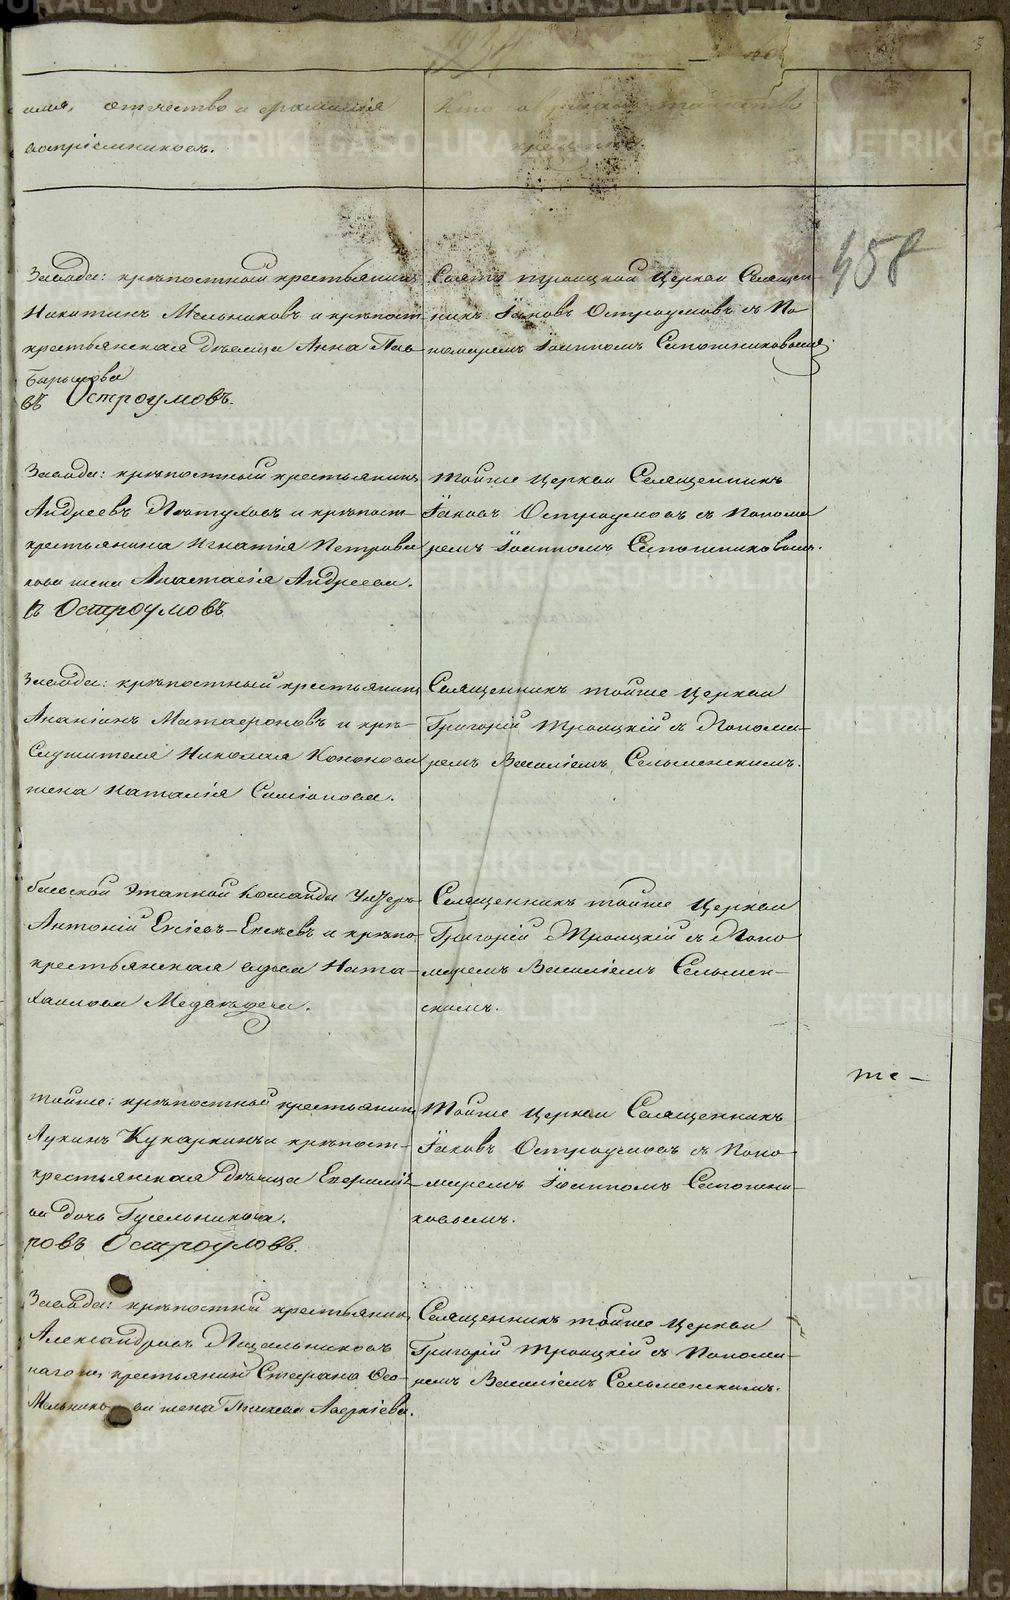 имя, отчество и фамилія
воспріемниковъ.
Кто совершалъ таинство
крещенія.
458
Завода: крѣпостной крестьянинъ
Никитинъ Мельниковъ и крѣпост-
крестьянская дѣвица Анна Пав-
Барышова
въ Остроумовъ.
Свято Троицкой Церкви Священ-
никъ Іаковъ Остроумовъ съ По
номаремъ Іоанномъ Сапожниковымъ.
Завода: крѣпостный крестьянинъ
Андреевъ Пѣтуховъ и крѣпост-
крестьянина Игнатія Петрова
кова жена Анастасія Андреева.
въ Остроумовъ
тойже Церкви Священникъ
Іаковъ Остроумовъ съ Понома
ремъ Іоанномъ Сапожниковымъ.
Завода: крѣпостный крестьянинъ
Ананіинъ Матафоновъ и крѣ-
Служителя Николая Кононова
жена Наталія Симіонова.
Священникъ тойже Церкви
Григорій Троицкій съ Понома-
ремъ Василіемъ Сельменскимъ.
Этапной Команды Унтеръ
Антоній Елисѣевъ и крѣпо
крестьянская вдова Ната-
хаилова Медвѣдева.
Священникъ тойже Церкви
Григорій Троицкій съ Поно
маремъ Василіемъ Сельмен-
скимъ.
тойже: крѣпостной крестьянинъ
Лукинъ Кукаркинъ и крѣпост-
крестьянская дѣвица Евфимія
ва дочь Гусельникова.
ковъ Остроумовъ.
Тойже Церкви Священникъ
Іаковъ Остроумовъ съ Поно-
маремъ Іоанномъ Сапожни-
ковымъ.
те-
Завода: крѣпостный крестьянинъ
Александровъ Пщальниковъ
наго крестьянина Стефана Ѳео-
Мельникова жена Аверкіева.
Священникъ тойже Церкви
Григорій Троицкій съ Понома-
ремъ Василіемъ Сельменскимъ.
METRIKI.GASO-URAL.RU